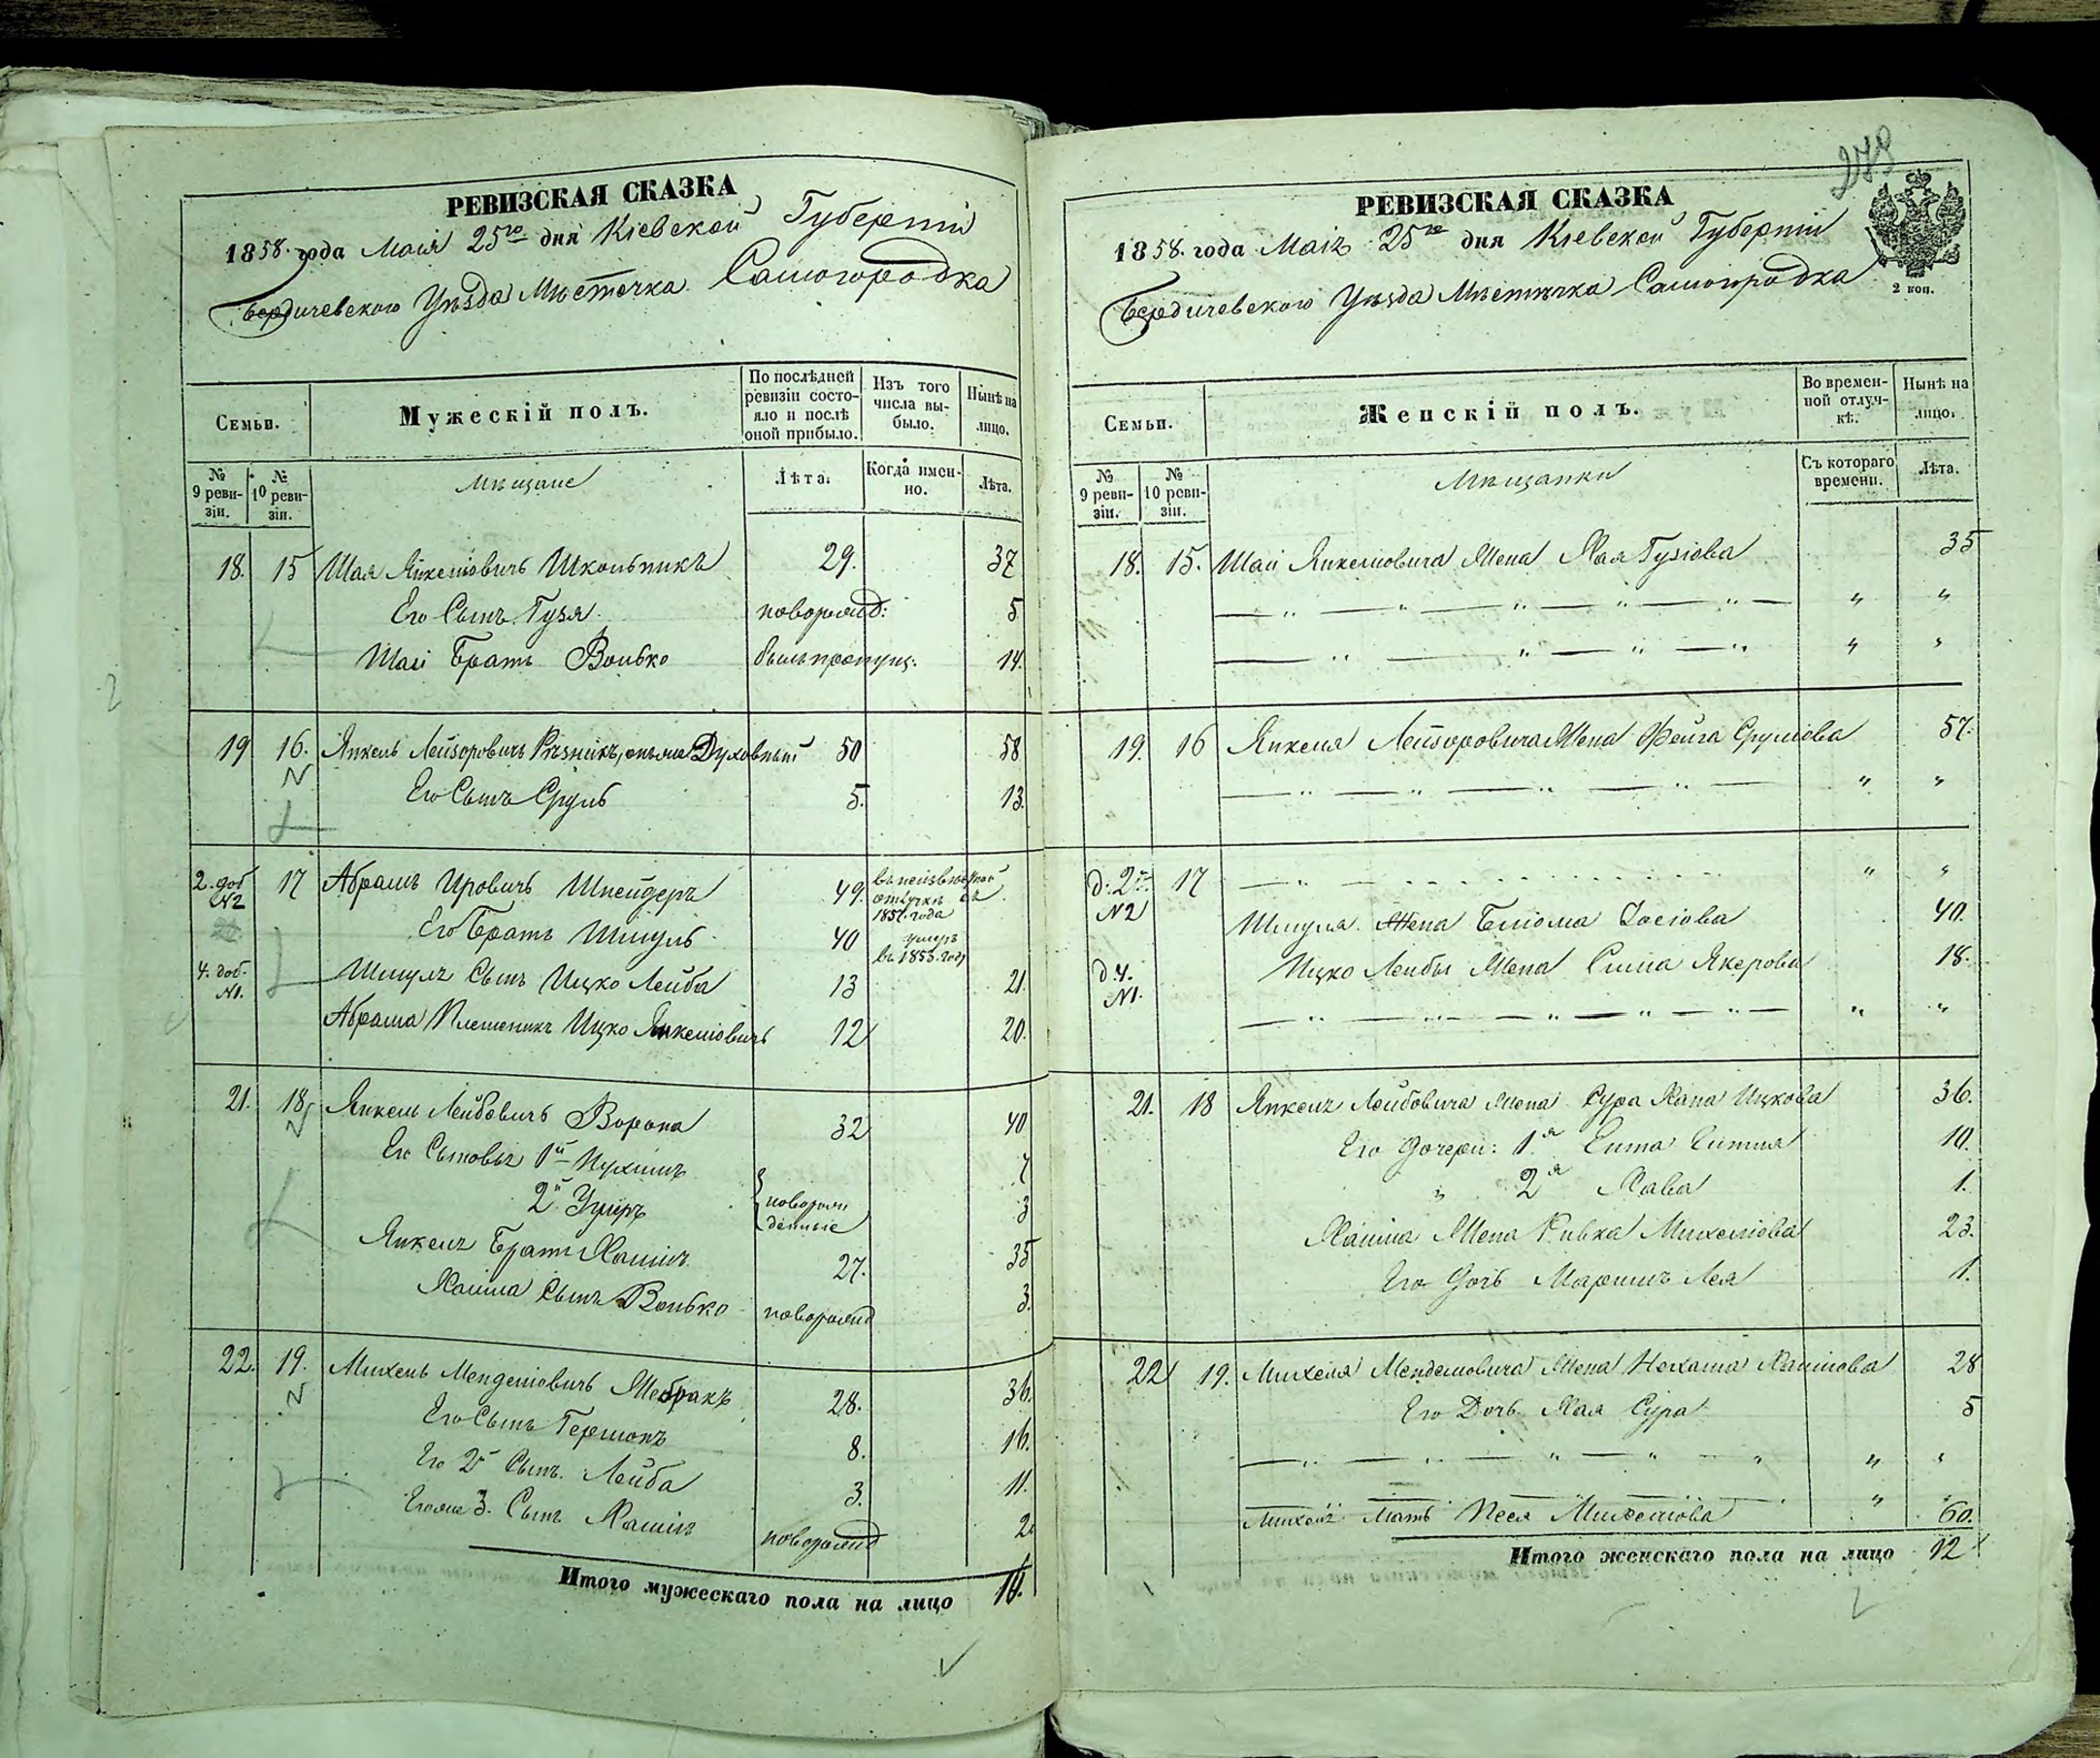 РЕВИЗСКАЯ СКАЗКА
1858. года Маія 25го дня Кіевской Губерніи
Бердичевского Уѣзда Мѣстечка Самогородка
Семьи.
Мужескій полъ.
По послѣдней ревизіи состояло и послѣ оной прибыло.
Изъ того числа выбыло.
Нынѣ на лицо.
№ 9 ревизіи.
№ 10 ревизіи.
Мѣщане
Лѣта.
Когда именно.
Лѣта.
18. 15 Шая Янкеліовичъ Школьникъ 29. 37
Его Сынъ Гузя новорожд: 5
Шаи Братъ Волько былъ пропущ. 14.
19 16. Янкель Лейзоровичъ Рѣзникъ, онъ же Духовный 50 58
Его Сынъ Сруль 5. 13.
2. доб №2 17 Абрамъ Ировичъ Шнейдеръ 49. въ неизвѣстной отлучкѣ съ 1857. года
Его Братъ Шмуль 40 умеръ въ 1853. году
4. доб. №1. Шмуля Сынъ Ицко Лейба 13 21.
Абрама Племеникъ Ицко Янкеліовичъ 12 20.
21. 18 Янкель Лейбовичъ Ворона 32 40
Его Сыновья 1й 7
2й новорожденные 3
Янкеля Братъ Хаимъ 27. 35
Хаима Сынъ Волько новорожд 3.
22. 19. Михель Менделіовичъ 28. 36.
Его Сынъ Гершонъ 8. 16.
Его 2й Сынъ. Лейба 3. 11.
Его же 3. Сынъ Хаимъ новорожд 2.
Итого мужескаго пола на лицо
279
РЕВИЗСКАЯ СКАЗКА
1858. года Маія 25го дня Кіевской Губерніи
Бердичевского Уѣзда Мѣстечка Самогородка
2 коп.
Семьи.
Женскій полъ.
Во временной отлучкѣ.
Нынѣ на лицо.
№ 9 ревизіи.
№ 10 ревизіи.
Мѣщанки
Съ котораго времени.
Лѣта.
18. 15. Шаи Янкеліовича Жена Хая Гузіова 35
— " — " — " — " — " — " "
— " — " — " — " " "
19. 16 Янкеля Лейзоровича Жена Фейга Cруліова 57.
— " — " — " — " — " "
д. 2й №2 17 — " — " "
Шмуля Жена Блюма Іосіова 40.
д 4. №1. Ицко Лейбы Жена Сима 18.
— " — " — " — " — " " "
21. 18 Янкеля Лейбовича Жена Сура Хана Ицкова 36.
Его дочери: 1я Ента 10.
" 2я Хава 1.
Хаима Жена Ривка Михеліова 23.
Его Дочь Лея 1.
22 19. Михеля Менделіовича Жена Нехама Хаимова 28
Его Дочь Хая Сура 5
— " — " — " — " " "
— — — — — " "
Михеля Мать Песя Михеліова 60.
Итого женскаго пола на лицо 12